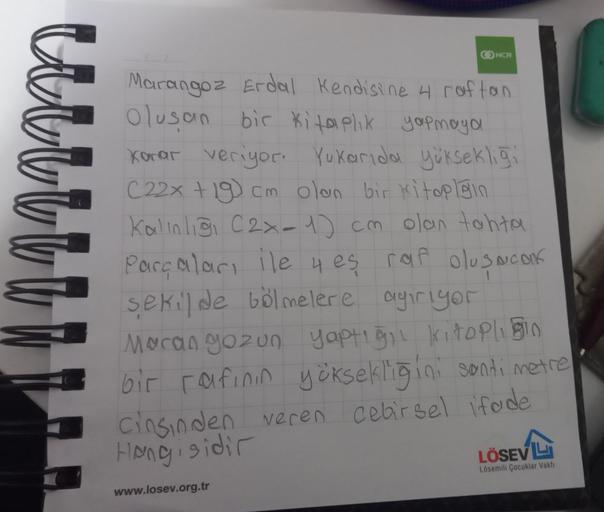 NCR
Marangoz Erdal Kendisine 4 raftan
Oluşan bir Kitaplık yapmaya
Karar veriyor. Yukarıda yüksekliği
(22x + 19) cm olan bir kitaplığın
Kalınlığı (2x-1) cm olan tahta
Parçaları ile 4 eş raf oluşacak
şekilde bölmelere ayırıyor
Marangozun yaptığı kitaplığın
bir rafının yüksekliğini santi metre
cinsinden veren cebirsel ifade
Hangisidir
LÖSEV
Lösemili Çocuklar Vakfı
www.losev.org.tr